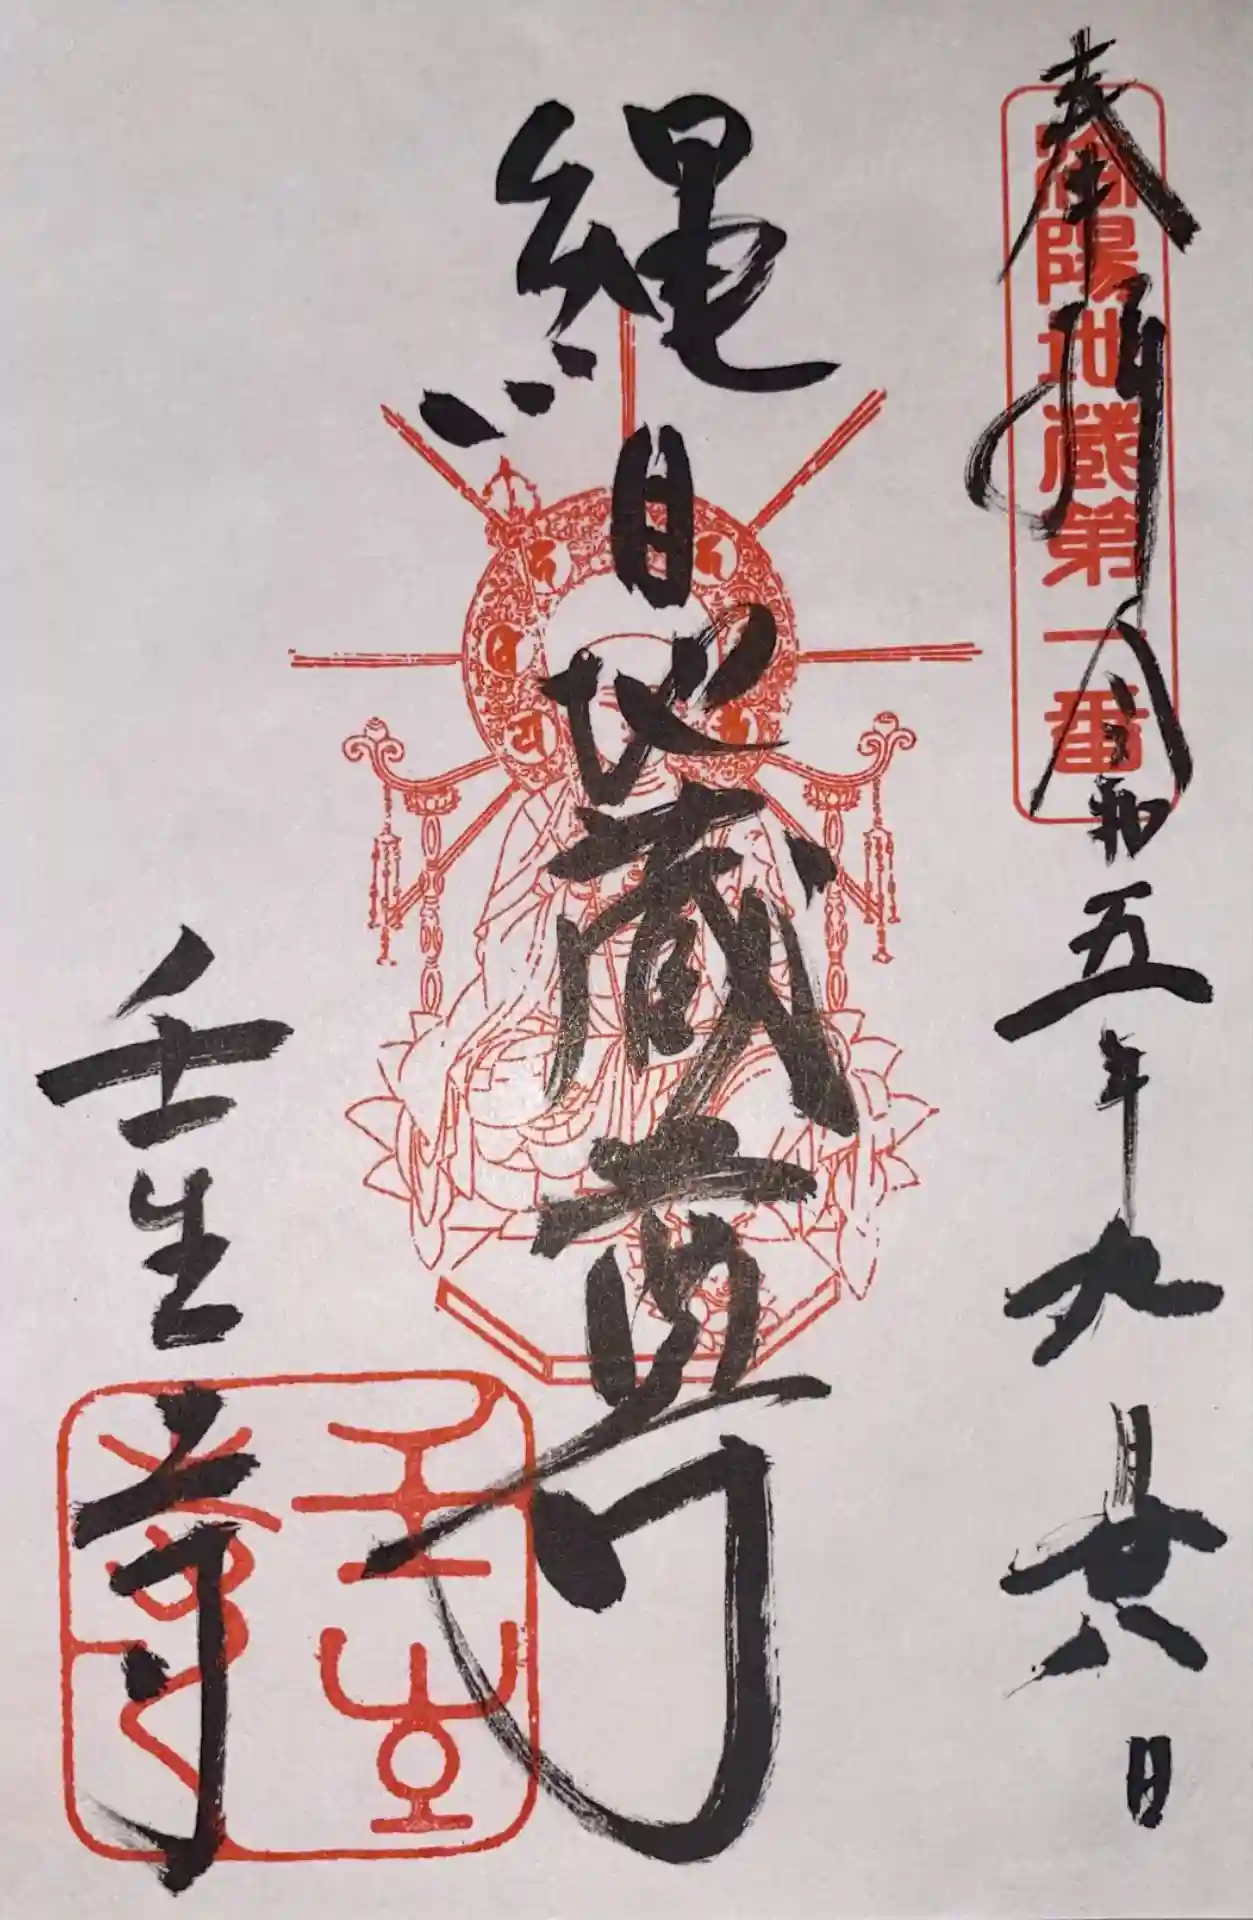 奉拝
令和五年九月廿八日
洛陽地蔵第一番
縄目地蔵尊
壬生寺
壬生寺